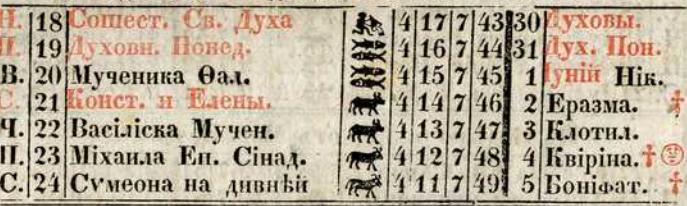 Н. 18 Сошест. Св. Духа 4 17 7 43 30 Духовы.
П. 19 Духовн. Понед. 4 16 7 44 31 Дух. Пон.
В. 20 Мученика Ѳал. 4 15 7 45 1 Іуній Нік.
С. 21 Конст. и Елены. 4 14 7 46 2 Еразма. †
Ч. 22 Васіліска Мучен. 4 13 7 47 3 Клотил.
П. 23 Міхаила Еп. Сінад. 4 12 7 48 4 Квіріна. †
С. 24 Сѵмеона на дивнѣй 4 11 7 49 5 Боніфат. †